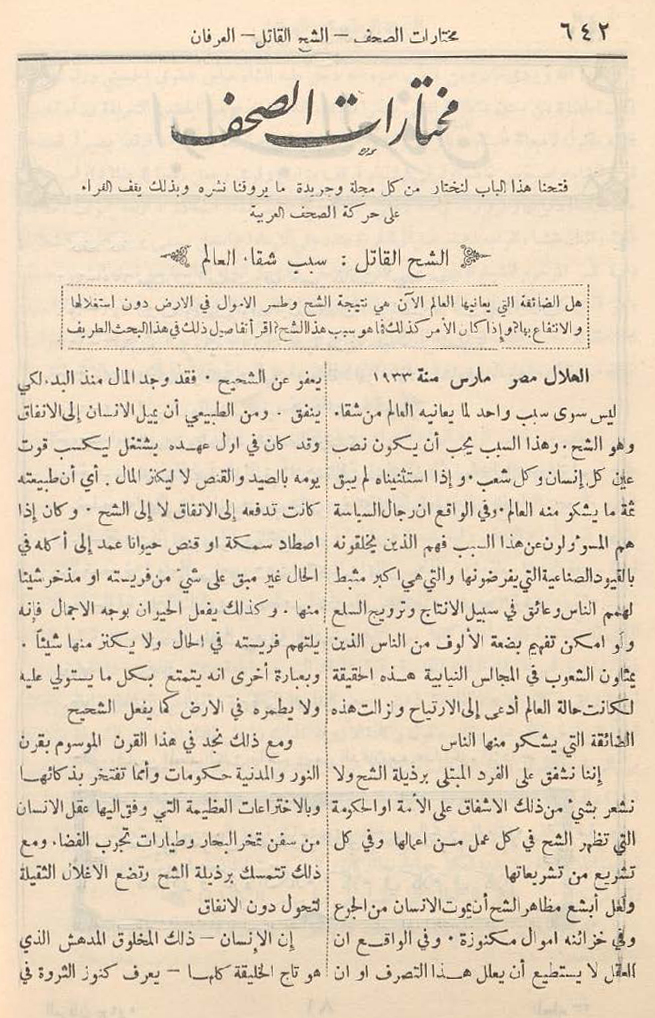 ٦٤٢
مختارات الصحف – الشح القاتل – العرفان
مختارات الصحف
فتحنا هذا الباب لنختار من كل مجلة وجريدة ما يروقنا نشره وبذلك يقف القراء
على حركة الصحف العربية
الشح القاتل : سبب شقاء العالم
هل الضائقة التي يعانيها العالم الآن هي نتيجة الشح وطمر الاموال في الارض دون استغلالها
والانتفاع بها? وإذا كان الأمر كذلك فما هو سبب هذا الشح? اقرأ تفاصيل ذلك في هذا البحث الطريف
الهلال مصر مارس سنة ١٩٣٣
ليس سوى سبب واحد لما يعانيه العالم من شقاء.
وهو الشح. وهذا السبب يجب أن يكون نصب
عين كل إنسان وكل شعب. وإذا استثنيناه لم يبق
ثمة ما يشكو منه العالم. وفي الواقع ان رجال السياسة
هم المسؤولون عن هذا السبب فهم الذين يخلقونه
بالقيود الصناعية التي يفرضونها والتي هي اكبر مثبط
لهمم الناس وعائق في سبيل الانتاج وترويج السلع
ولو امكن تفهيم بضعة الألوف من الناس الذين
يمثلون الشعوب في المجالس النيابية هذه الحقيقة
لكانت حالة العالم أدعى إلى الارتياح ولزالت هذه
الضائقة التي يشكو منها الناس
إننا نشفق على الفرد المبتلى برذيلة الشح ولا
نشعر بشيء من ذلك الاشفاق على الأمة او الحكومة
التي تظهر الشح في كل عمل من اعمالها وفي كل
تشريع من تشريعاتها
ولعل أبشع مظاهر الشح أن يموت الانسان من الجوع
وفي خزائنه اموال مكنوزة. وفي الواقع ان
العقل لا يستطيع أن يعلل هذا التصرف او ان
يعفو عن الشحيح. فقد وجد المال منذ البدء لكي
ينفق. ومن الطبيعي أن يميل الانسان إلى الانفاق
وقد كان في اول عهده يشتغل ليكسب قوت
يومه بالصيد والقنص لا ليكنز المال. أي أن طبيعته
كانت تدفعه إلى الانفاق لا إلى الشح. وكان إذا
اصطاد سمكة او قنص حيوانا عمد إلى أكله في
الحال غير مبق على شيء من فريسته او مذخر شيئا
منها. وكذلك يفعل الحيوان بوجه الاجمال فإنه
يلتهم فريسته في الحال ولا يكنز منها شيئاً.
وبعبارة أخرى انه يتمتع بكل ما يستولي عليه
ولا يطمره في الارض كما يفعل الشحيح
ومع ذلك نجد في هذا القرن الموسوم بقرن
النور والمدنية حكومات وأمما تفتخر بذكائها
وبالاختراعات العظيمة التي وفق اليها عقل الانسان
من سفن تمخر البحار وطيارات تجوب الفضاء، ومع
ذلك تتمسك برذيلة الشح وتضع الاغلال الثقيلة
لتحول دون الانفاق
إن الإنسان – ذلك المخلوق المدهش الذي
هو تاج الخليقة كلها – يعرف كنوز الثروة في